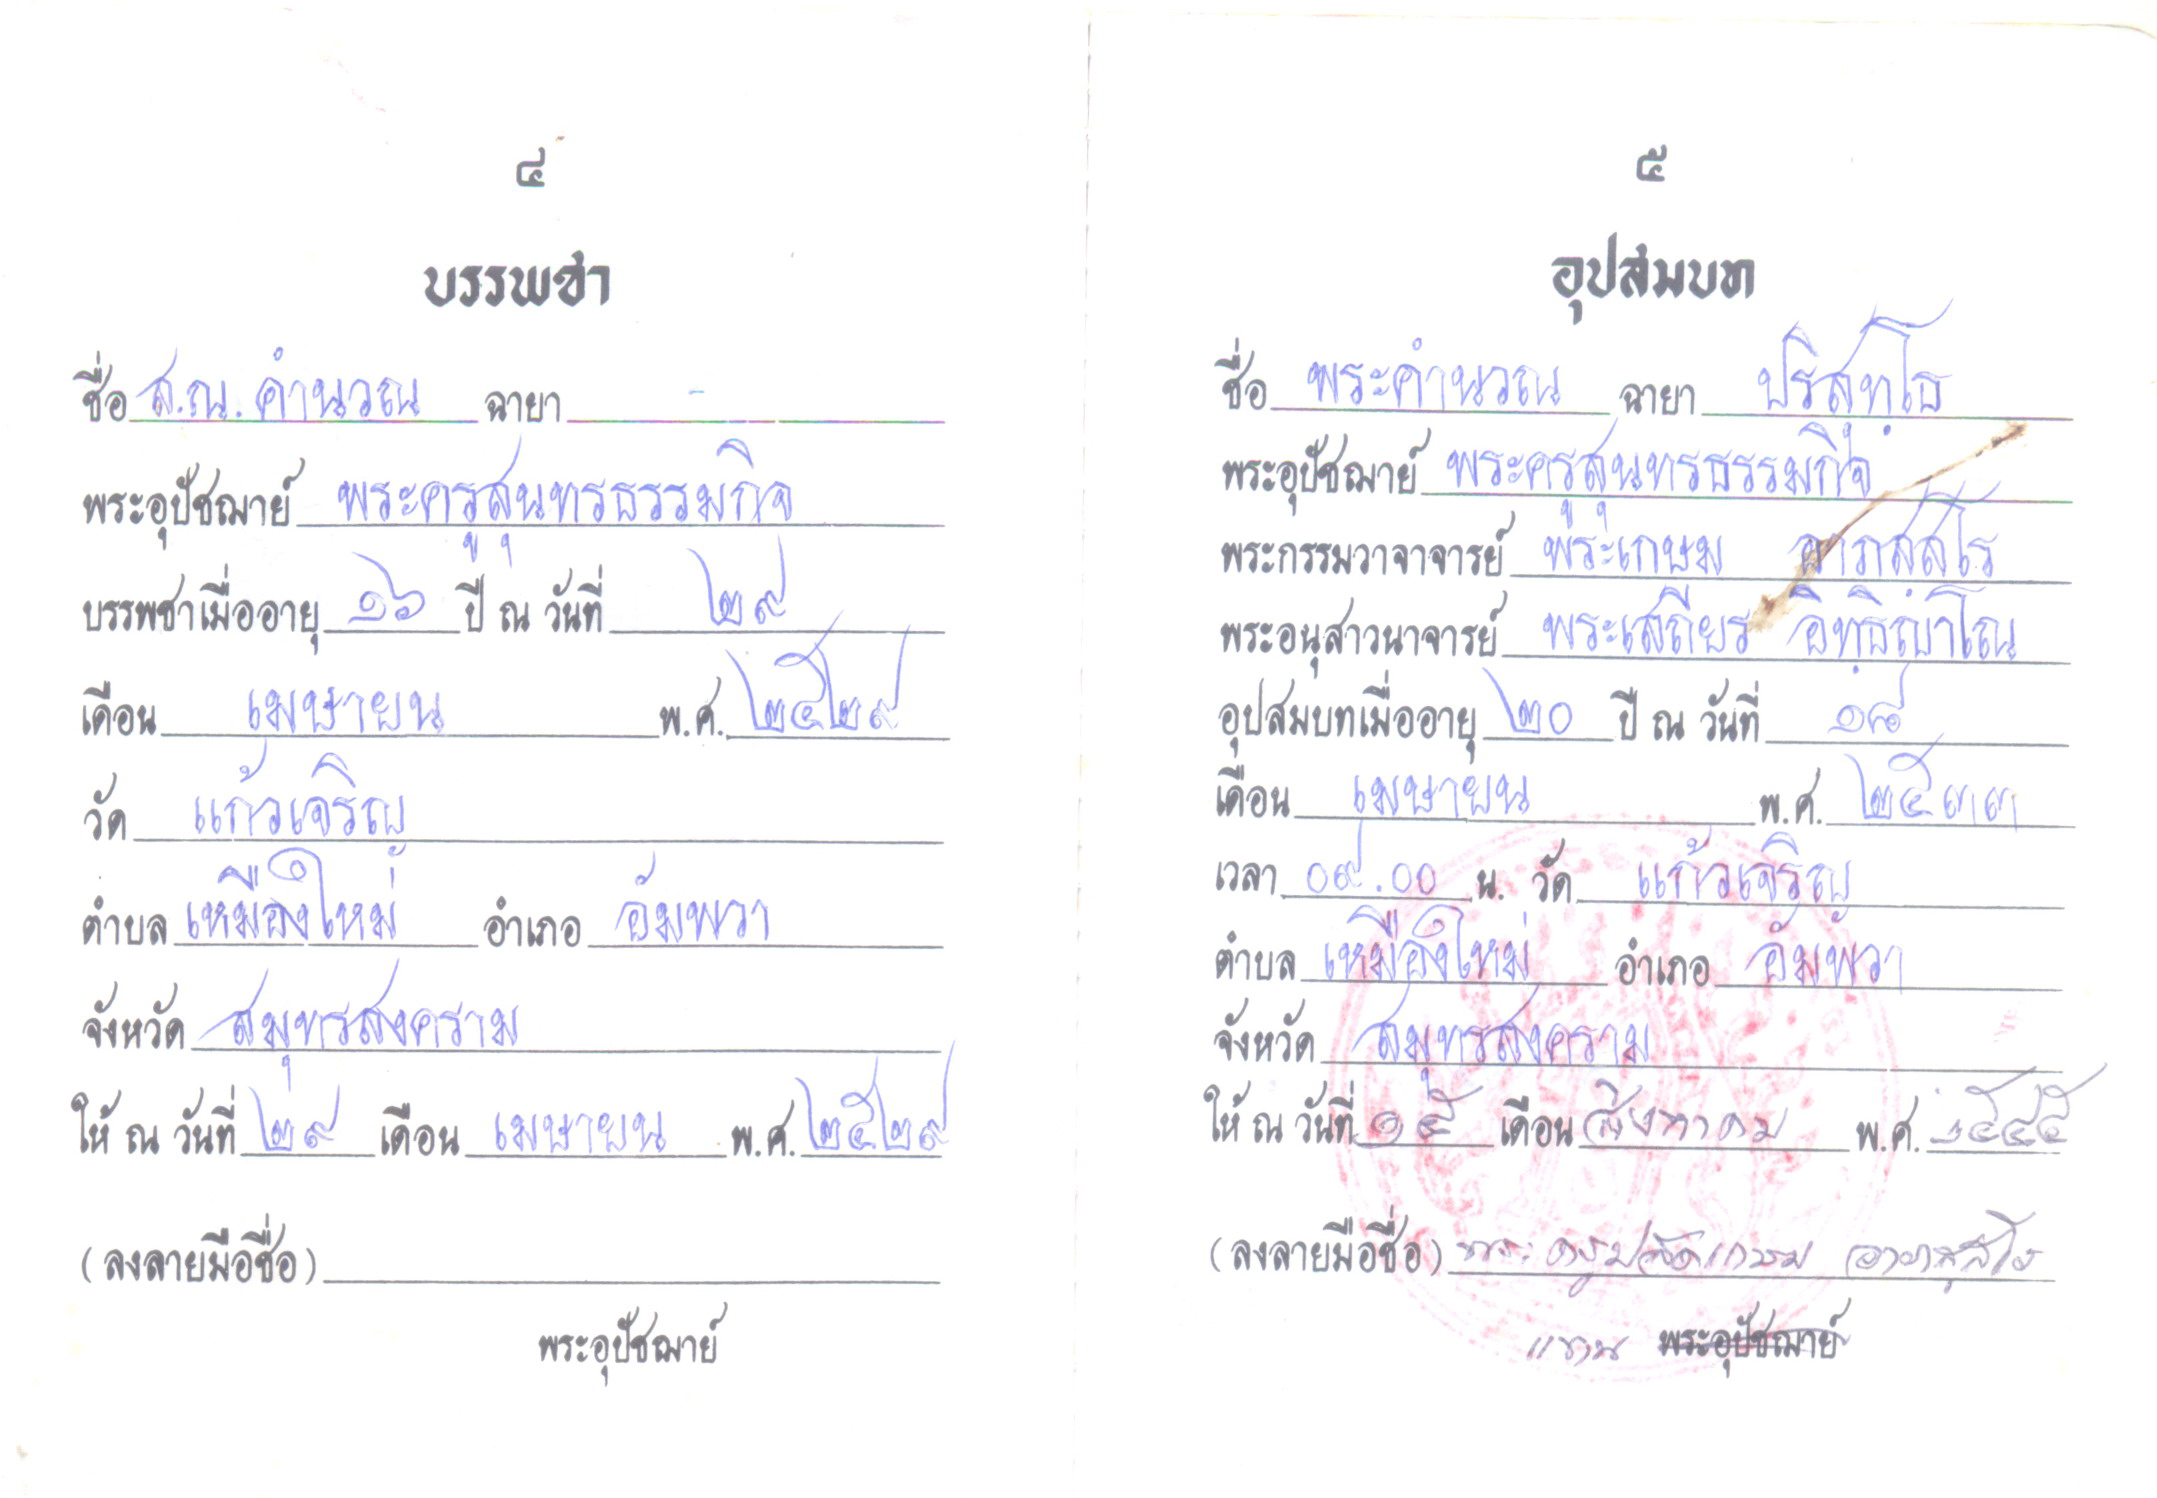 ๔
บรรพชา
ชื่อ ส.ณ. คำนวณ ฉายา -
พระอุปัชฌาย์ พระครูสุนทรธรรมกิจ
บรรพชาเมื่ออายุ ๑๖ ปี ณ วันที่ ๒๙
เดือน เมษายน พ.ศ. ๒๕๒๙
วัด แก้วเจริญ
ตำบล เหมืองใหม่ อำเภอ อัมพวา
จังหวัด สมุทรสงคราม
ให้ ณ วันที่ ๒๙ เดือน เมษายน พ.ศ. ๒๕๒๙
(ลงลายมือชื่อ)
พระอุปัชฌาย์
๕
อุปสมบท
ชื่อ พระคำนวณ ฉายา ปริสุทฺโธ
พระอุปัชฌาย์ พระครูสุนทรธรรมกิจ
พระกรรมวาจาจารย์ พระเกษม อาภสฺสโร
พระอนุสาวนาจารย์ พระเสถียร อิทฺธิญาโณ
อุปสมบทเมื่ออายุ ๒๐ ปี ณ วันที่ ๑๘
เดือน เมษายน พ.ศ. ๒๕๓๓
เวลา ๐๙.๐๐ น. วัด แก้วเจริญ
ตำบล เหมืองใหม่ อำเภอ อัมพวา
จังหวัด สมุทรสงคราม
ให้ ณ วันที่ ๑๕ เดือน สิงหาคม พ.ศ. ๒๕๔๕
(ลงลายมือชื่อ) พระครูปลัดเกษม
แทน พระอุปัชฌาย์